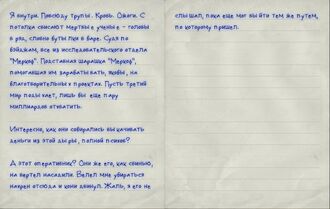 Я внутри. Повсюду трупы. Кровь. Ожоги. С
потолка свисают мертвые ученые - головы
в ряд, словно бутылки в баре. Судя по
бэйджам, все из исследовательского отдела
"Меркоф". Подставная шарашка "Меркоф",
помогавшая им зарабатывать, якобы, на
благотворительных проектах. Пусть третий
мир подыхает, лишь бы еще пару
миллиардов отхватить.

Интересно, как они собирались выкачивать
деньги из этой дыры, полной психов?

А этот оперативник? Они же его, как свинью,
на вертел насадили. Велел мне убираться
нахрен отсюда и кони двинул. Жаль, я его не
слышал, пока еще мог выйти тем же путем,
по которому пришел.